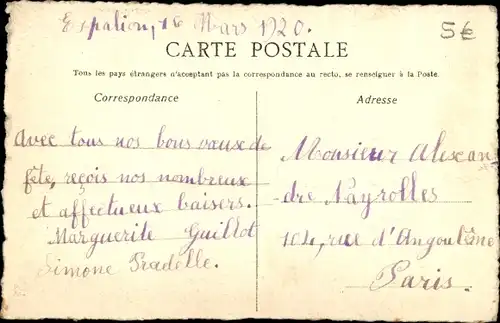 Espalion, 16 Mars 1920.
5€
CARTE POSTALE
Tous les pays étrangers n'acceptant pas la correspondance au recto, se renseigner à la Poste
Correspondance
Avec tous nos bons vœux de
fête, reçois nos nombreux
et affectueux baisers.
Marguerite Guillot
Simone Pradelle.
Adresse
Monsieur Alexan-
dre Nayrolles
104, rue d'Angoulême
Paris.